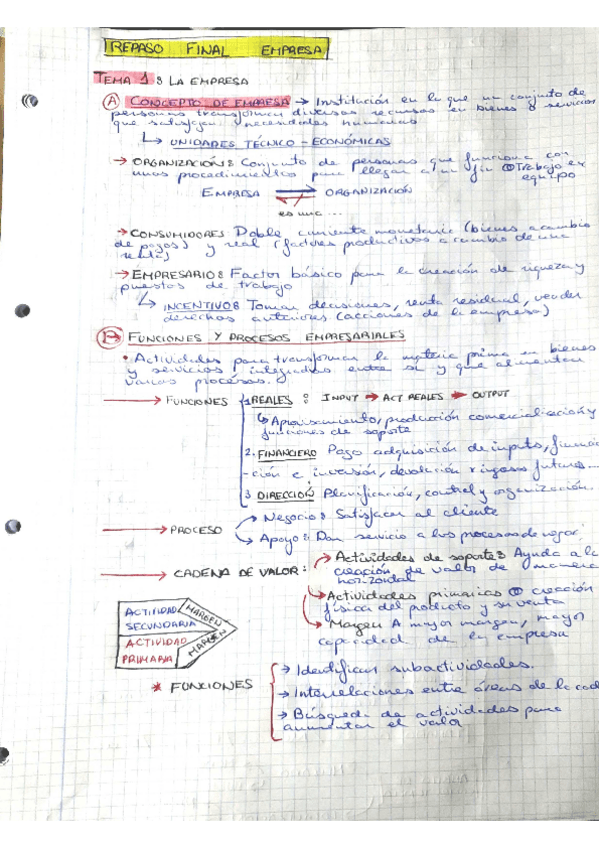 REPASO FINAL EMPRESA
TEMA 1: LA EMPRESA
A CONCEPTO DE EMPRESA → Institución en la que un conjunto de
personas transforman diversos recursos en bienes o servicios
que satisfagan necesidades humanas
↳ UNIDADES TÉCNICO-ECONÓMICAS
→ ORGANIZACIÓN: Conjunto de personas que funciona con
unos procedimientos para llegar a un fin Trabajo en
equipo
EMPRESA ORGANIZACIÓN
es una ...
→ CONSUMIDORES: Doble corriente monetaria (bienes a cambio
de pagos) y real (factores productivos a cambio de una
renta)
→ EMPRESARIO: Factor básico para la creación de riqueza y
puestos de trabajo
↳ INCENTIVOS: Tomar decisiones, renta residual, vender
derechos anteriores (acciones de la empresa)
B FUNCIONES Y PROCESOS EMPRESARIALES
• Actividades para transformar la materia prima en bienes
y servicios integrados entre sí y que alimentan
varios procesos.
→ FUNCIONES 1. REALES: INPUT → ACT REALES → OUTPUT
↳ Aprovisamiento, producción comercialización y
funciones de soporte
2. FINANCIERO Pago adquisición de inputs, financia
-ción e inversión, devolución ingresos futuros...
3 DIRECCIÓN Planificación, control y organización.
→ PROCESO Negocio: Satisfacer al cliente
Apoyo: Dan servicio a los procesos de negoc.
→ CADENA DE VALOR: Actividades de soporte: Ayuda a la
creación de valor de manera
horizontal
→ Actividades primarias creación
física del producto y su venta
→ Margen A mayor margen, mayor
capacidad de la empresa
ACTIVIDAD
SECUNDARIA
MARGEN
ACTIVIDAD
PRIMARIA
MARGEN
* FUNCIONES → Identifican subactividades.
→ Interrelaciones entre áreas de la cad
→ Búsqueda de actividades para
aumentar el valor